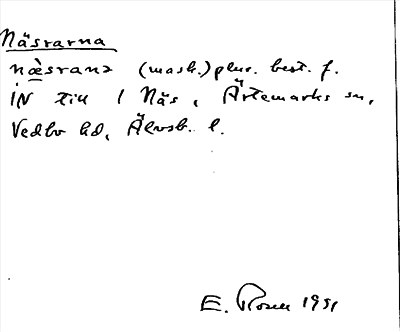 Näsrarna
næ̀srana (mask.) plur. best. f.
IN till 1 Näs, Ärtemarks sn,
Vedbo hd, Älvsb. l.
E. Rosen 1951